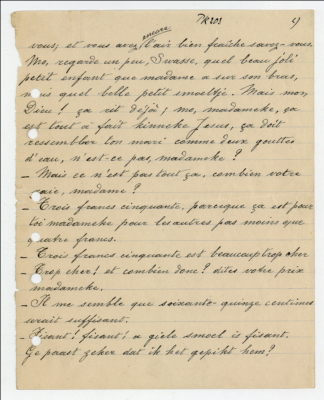 7KROS 4)
encore
vous, et vous avez l'air bien fraîche savez-vous.
Mo, regarde un peu, Swasse, quel beau joli
petit enfant que madame a sur son bras,
mais quel belle petit smoeltje. Mais mon
Dieu! ça rit déjà; mo, madameke, ça
est tout à fait kinneke Jesus, ça doit
ressembler ton mari comme deux gouttes
d'eau, n'est-ce pas, madameke?
- Mais ce n'est pas tout ça, combien votre
raie, madame?
- Trois francs cinquante, parceque ça est pour
toi madameke pour les autres pas moins que
quatre francs.
- Trois francs cinquante est beaucoup trop cher
- Trop cher! et combien donc? dites votre prix
madameke.
- Il me semble que soixante-quinze centimes
serait suffisant.
- Fisant! fisant! a giele smoel is fisant.
Ge paast zeker dat ik het gepikt hem?